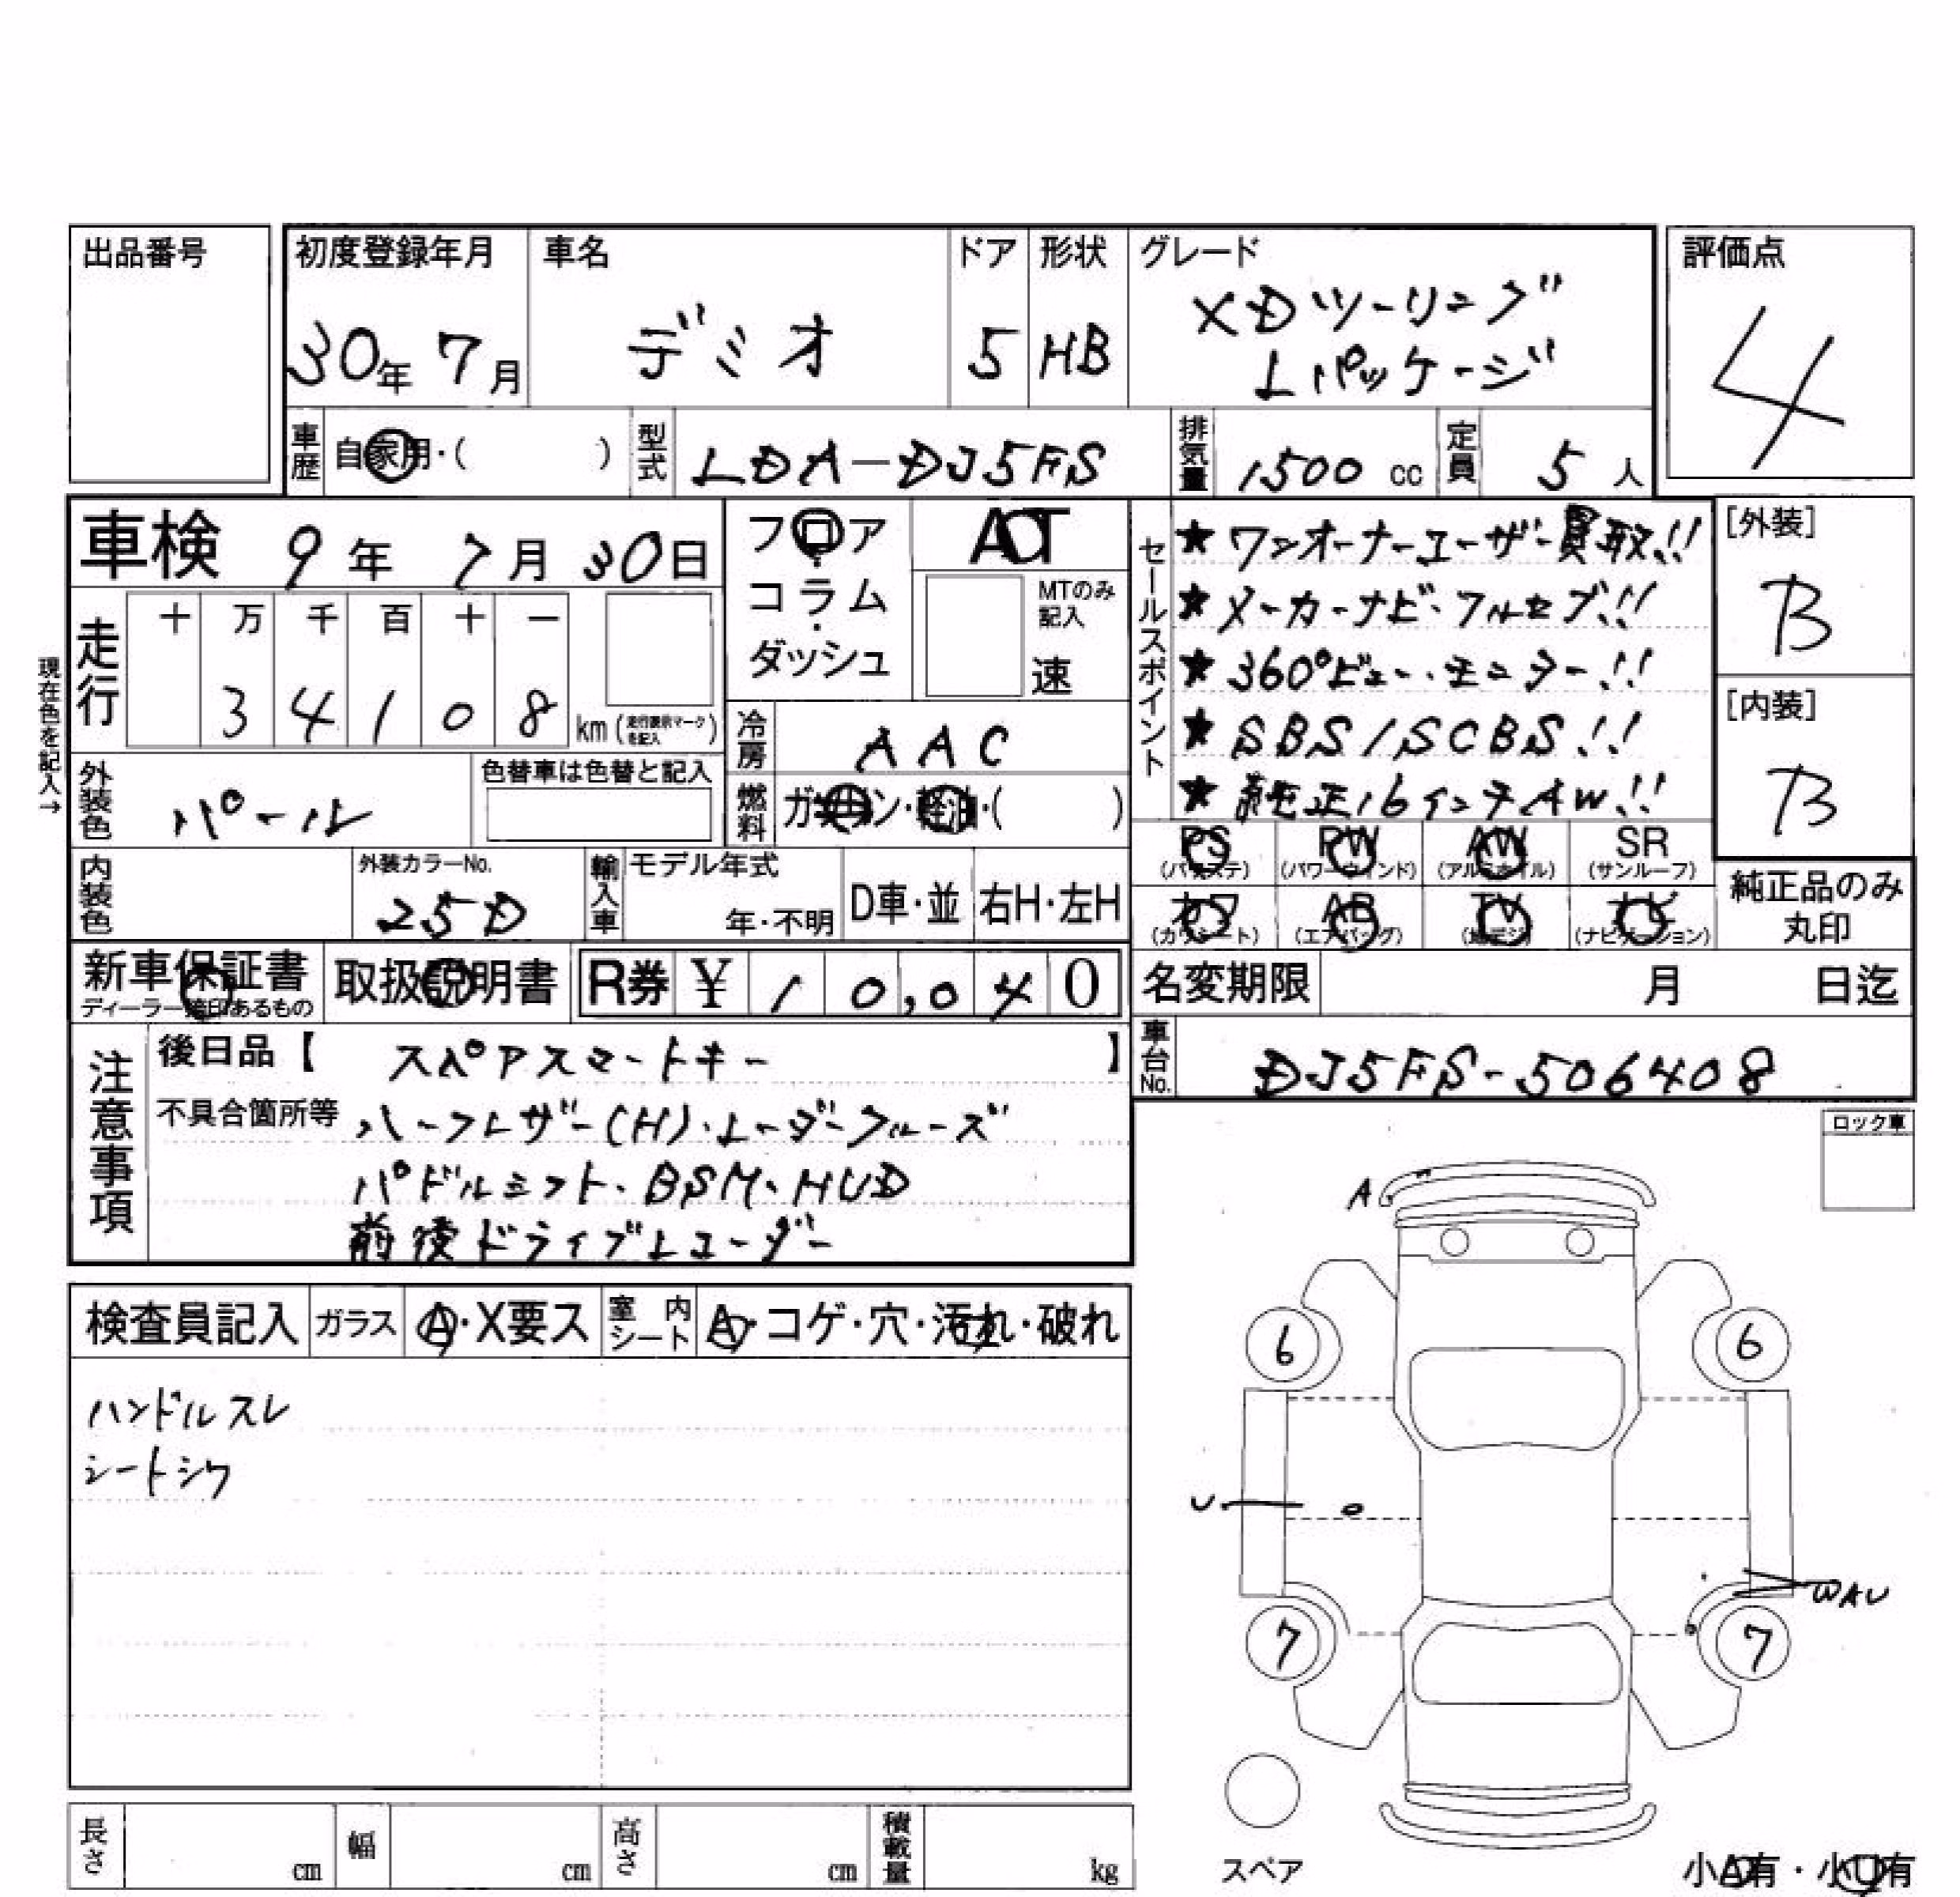 出品番号
初度登録年月 車名 ドア 形状 グレード 評価点
30年 7月 デミオ 5 HB XDツーリング
Lパッケージ
4
車歴 自家用・( ) 型式 LDA-DJ5FS 排気量 1500 cc 定員 5 人
車検 9年 7月 30日
フロア
・
コラム
・
ダッシュ
AT
MTのみ
記入
速
セールスポイント
★ワンオーナーユーザー買取!!
★メーカーナビ・フルセグ!!
★360°ビュー・モニター!!
★SBS/SCBS!!
★純正16インチAW!!
[外装]
B
[内装]
B
現在色を記入→
走行 十 万 千 百 十 一
3 4 1 0 8 km (走行表示マークを記入)
冷房 AAC
外装色 パール 色替車は色替と記入
燃料 ガソリン・軽油・( )
PS (パワステ) PW (パワーウィンド) AW (アルミホイル) SR (サンルーフ)
カワ (カワシート) AB (エアバッグ) TV (地デジ) ナビ (ナビゲーション)
純正品のみ
丸印
内装色 外装カラーNo. 25D 輸入車 モデル年式 年・不明 D車・並 右H・左H
新車保証書 取扱説明書 R券 ¥ 10,040
ディーラー捺印あるもの
名変期限 月 日迄
車台No. DJ5FS-506408
注意事項
後日品【 スペアスマートキー 】
不具合箇所等 ハーフレザー(H)・レーダークルーズ
パドルシフト・BSM・HUD
前後ドライブレコーダー
ロック車
検査員記入 ガラス A・X要ス 室内シート A・コゲ・穴・汚れ・破れ
ハンドルスレ
シートシワ
A
6 6
U
WAU
7 7
スペア
小A有・小U有
長さ cm 幅 cm 高さ cm 積載量 kg